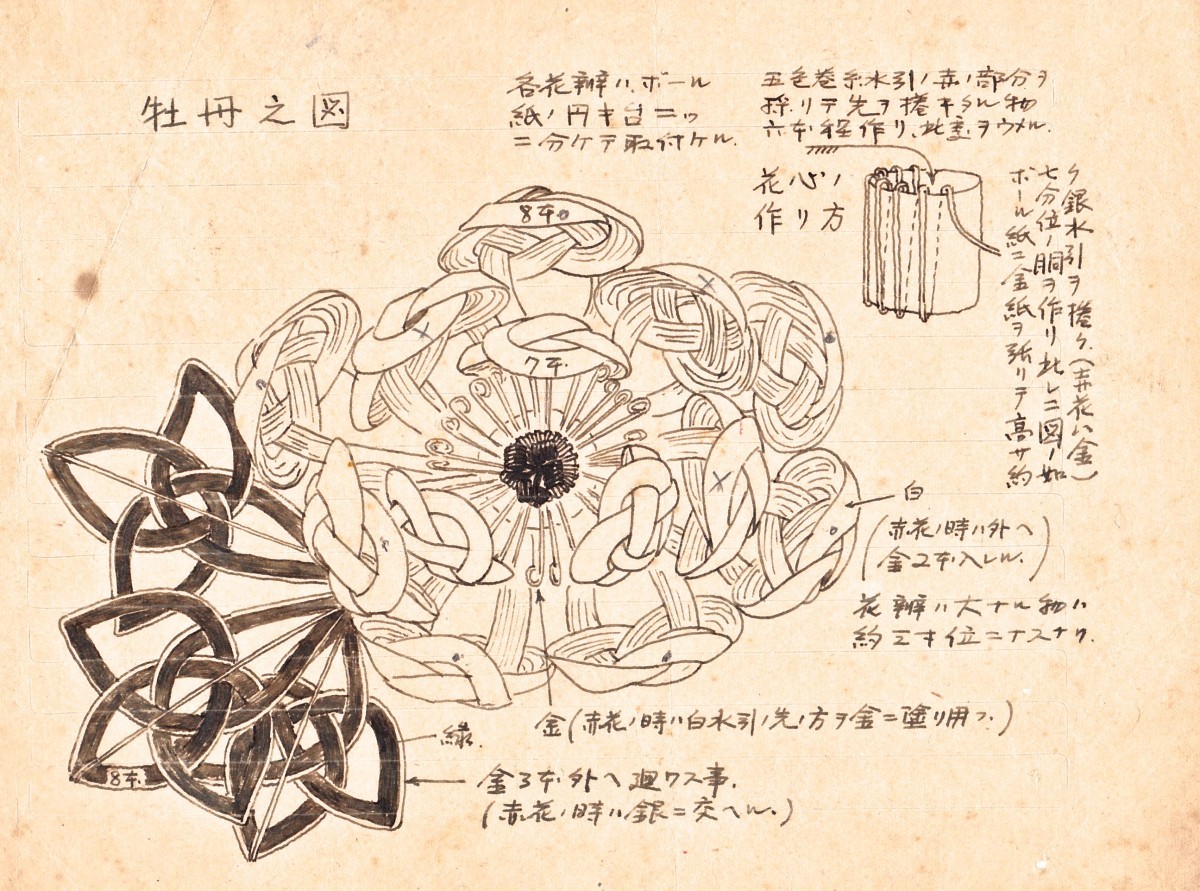 牡丹之図
各花辨ハ、ボール
紙ノ円キ台ニッ
ニ分ケテ取付ケル.
五色巻糸水引ノ赤ノ部分ヲ
採リテ先ヲ捲キタル物
六本程作リ、此處ヲウメル.
花心ノ
作リ方
ボール紙ニ金紙ヲ張リテ高サ約
七分位ノ胴ヲ作リ此レニ図ノ如
ク銀水引ヲ捲ク.(赤花ハ金)
8本。
7本.
白
(赤花ノ時ハ外ヘ
金2本入レル.)
花辨ハ大ナル物ハ
約三寸位ニナスナリ.
金(赤花ノ時ハ白水引ノ先ノ方ヲ金ニ塗リ用フ.)
緑.
8本.
金3本外ヘ廻ワス事.
(赤花ノ時ハ銀ニ交ヘル.)